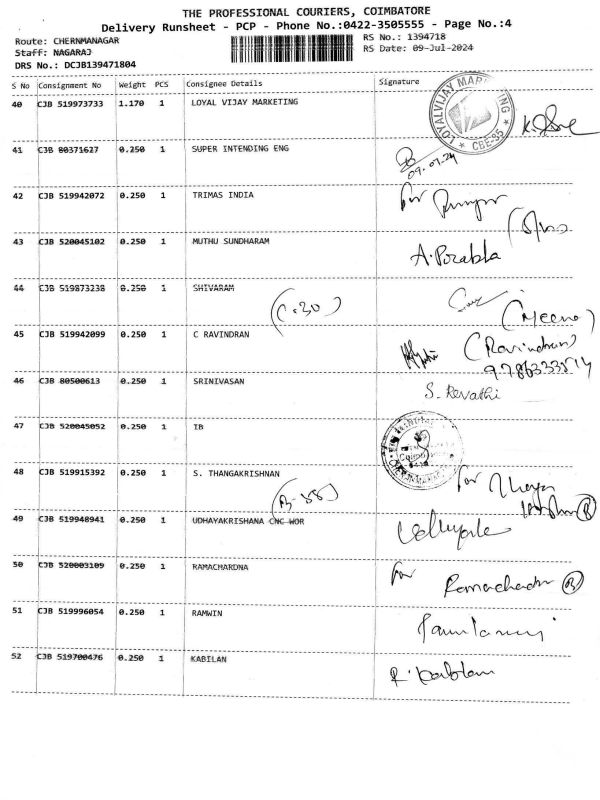 THE PROFESSIONAL COURIERS, COIMBATORE
Delivery Runsheet - PCP - Phone No.:0422-3505555 - Page No.:4
Route: CHERNMANAGAR
RS No.: 1394718
Staff: NAGARAJ
RS Date: 09-Jul-2024
DRS No.: DCJB139471804
S No Consignment No Weight PCS Consignee Details Signature
40 CJB 519973733 1.170 1 LOYAL VIJAY MARKETING
41 CJB 80371627 0.250 1 SUPER INTENDING ENG
09.07.24
42 CJB 519942072 0.250 1 TRIMAS INDIA
for
43 CJB 520045102 0.250 1 MUTHU SUNDHARAM A.Porabla
44 CJB 519873238 0.250 1 SHIVARAM
(C-30)
(Meena)
45 CJB 519942099 0.250 1 C RAVINDRAN (Ravindran)
9786333514
46 CJB 80500613 0.250 1 SRINIVASAN S. Revathi
47 CJB 520045052 0.250 1 IB
48 CJB 519915392 0.250 1 S. THANGAKRISHNAN for
(B-38)
49 CJB 519948941 0.250 1 UDHAYAKRISHANA CNC WOR
50 CJB 520003109 0.250 1 RAMACHARDNA for
51 CJB 519996054 0.250 1 RAMWIN
52 CJB 519700476 0.250 1 KABILAN R. Kabilan